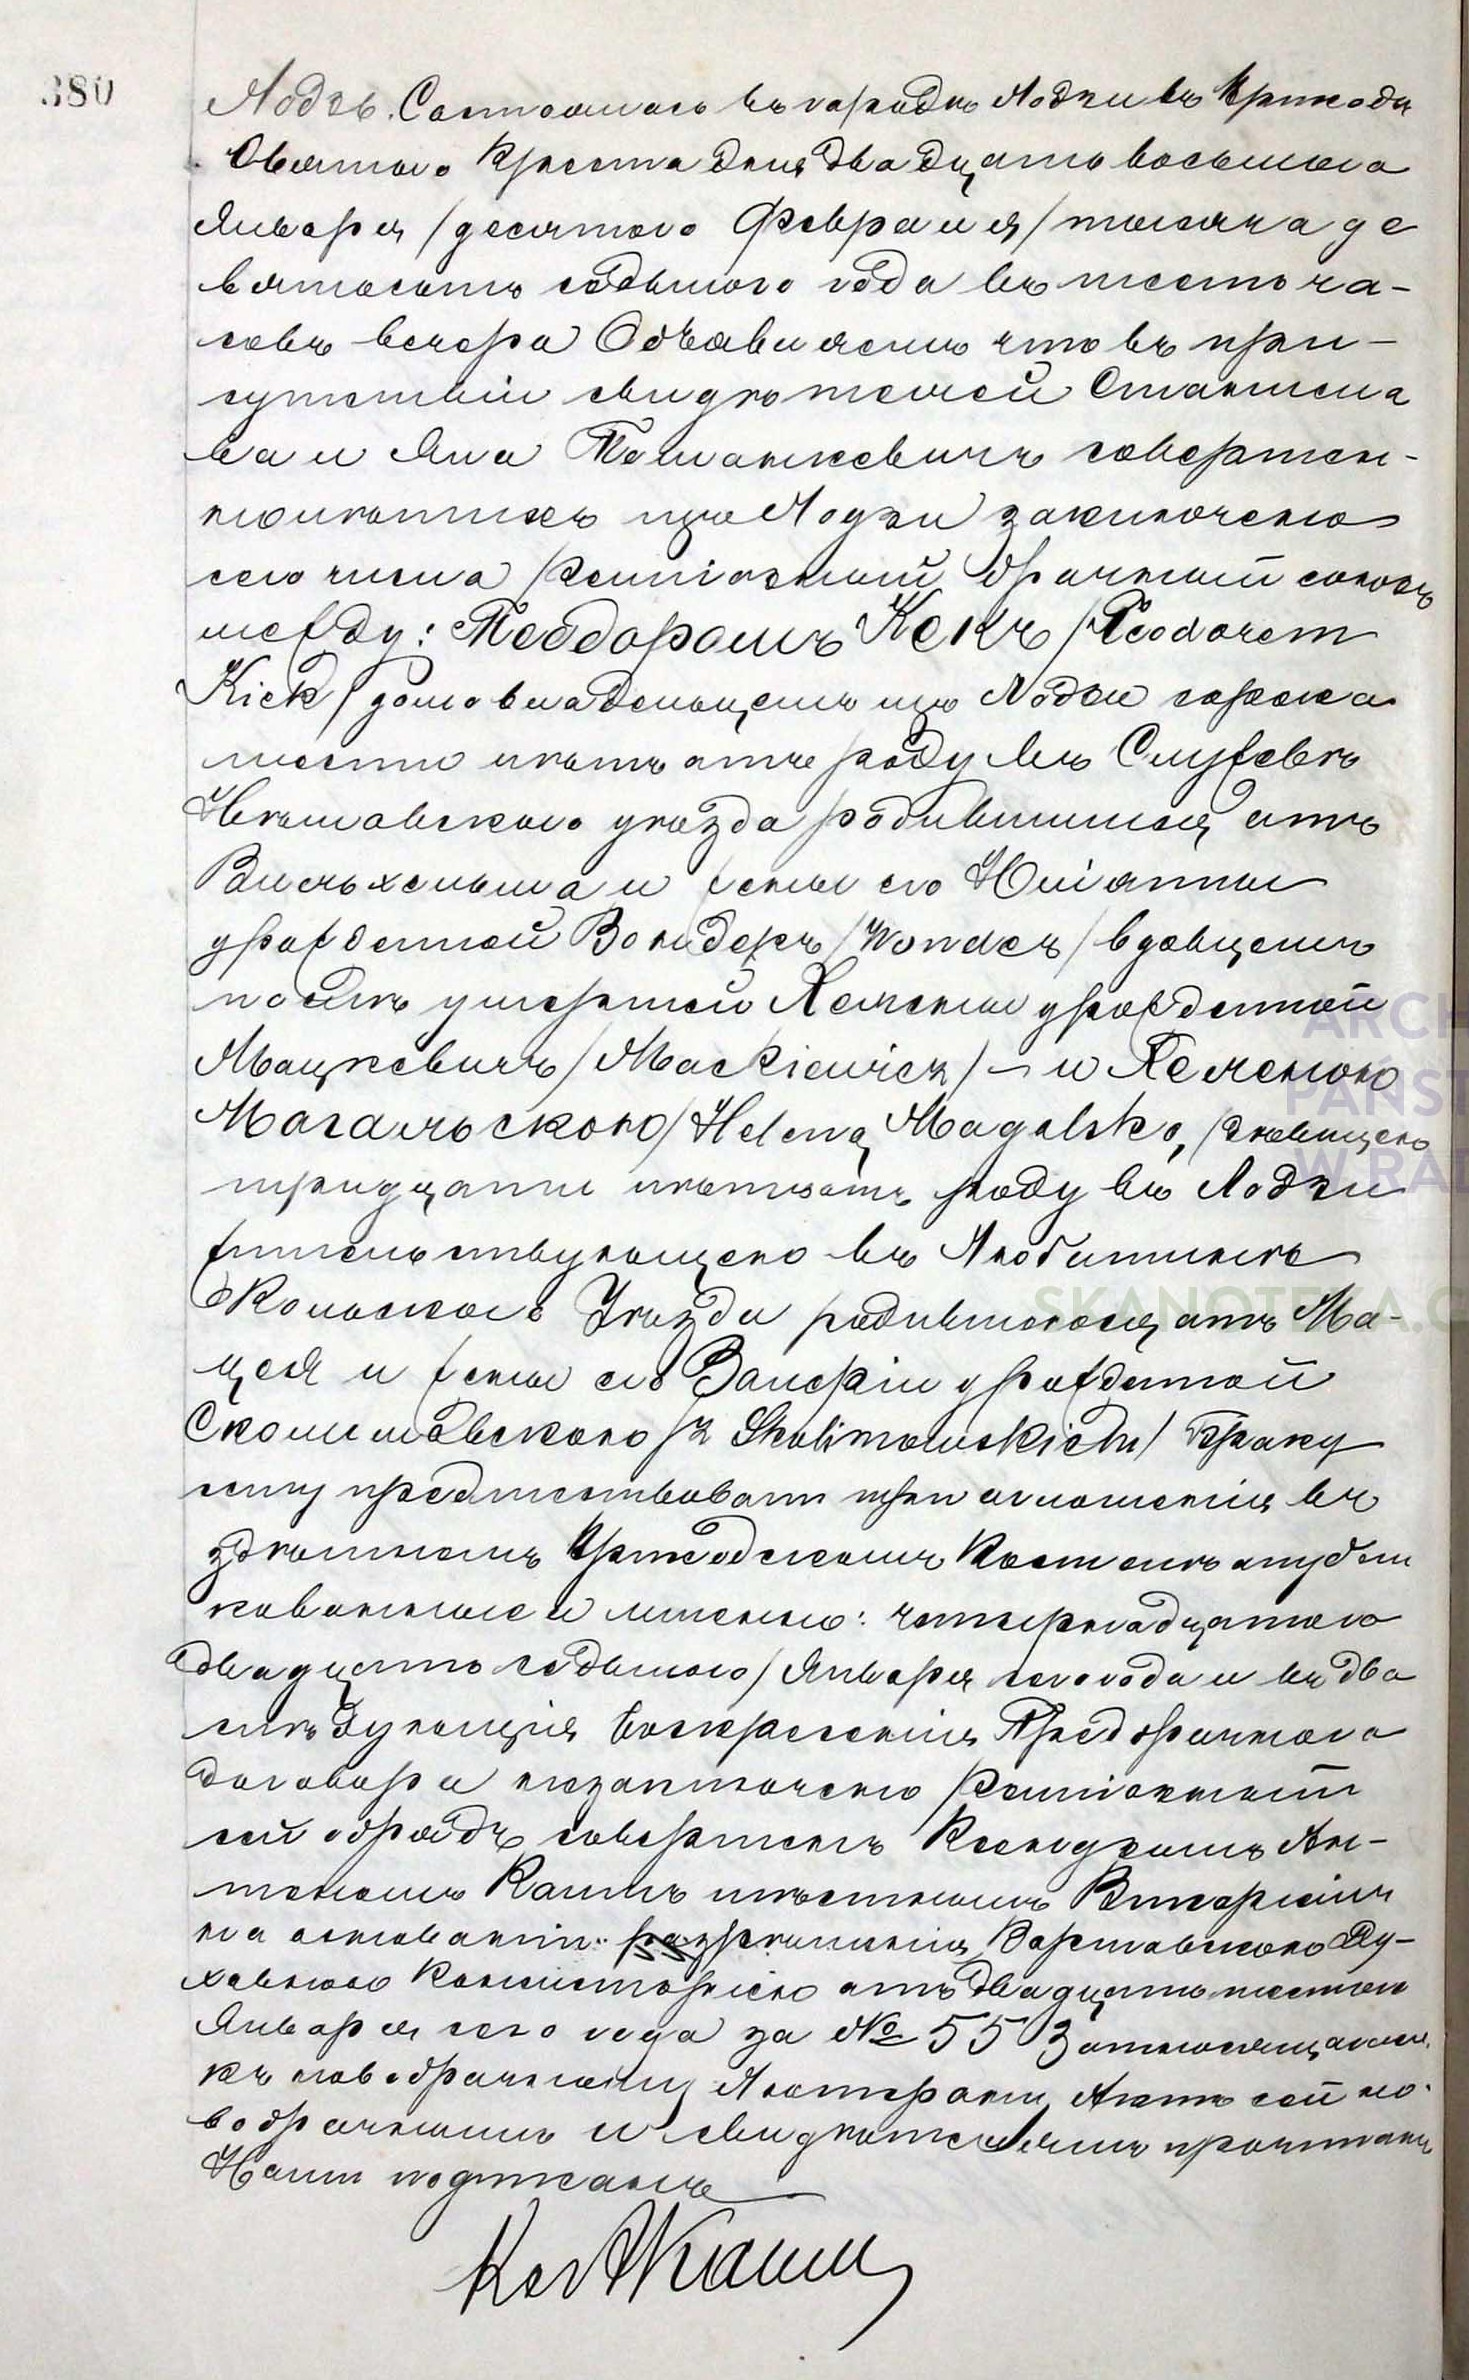 380
Лодзь. Состоялось въ городѣ Лодзи въ Приходѣ
Святого Креста дня двадцать восьмого
Января /десятого Февраля/ тысяча де
вятьсотъ седьмого года въ шесть ча-
совъ вечера Объявляемъ что въ при-
сутствіи свидѣтелей Станисла
ва и Яна Томашкевичъ совершен-
нолѣтнихъ изъ Лодзи заключенъ
сего числа религіозный брачный союзъ
между: Теодоромъ Кекъ /Teodorem
Kiek/ домовладѣльцемъ изъ Лодзи сорока
шести лѣтъ отъ роду въ Служевѣ
Нешавскаго уѣзда родившимся отъ
Вильхельма и жены его Юліанны
урожденной Вондеръ /Wonder/ вдовцемъ
послѣ умершей Хелены урожденной
Мацкевичъ /Mackiewicz/ – и Хеленою
Магальскою /Heleną Magalską/ дѣвицею
тридцати лѣтъ отъ роду въ Лодзи
жительствующею въ
Кольскаго Уѣзда родившеюся отъ Ма-
цея и жены его Валеріи урожденной
Сколимовскою /z Skolimowskich/ Браку
сему предшествовали три оглашенія въ
здѣшнемъ Приходскомъ Костелѣ опубли
кованныя и именно: четырнадцатого
двадцать седьмого/ Января сего года и въ два
слѣдующія Воскресенія Предбрачного
договора не заключено Религіозный
сей обрядъ совершенъ Ксендзомъ Ан-
тономъ мѣстнымъ Викаріемъ
на основаніи разрѣшенія Варшавскою Ду-
ховною Консисторіею отъ двадцать шестого
Января сего года за № 553 относящагося
къ новобрачному Лютеранину Актъ сей но-
вобрачнымъ и свидѣтелямъ прочитанъ
Нами подписанъ